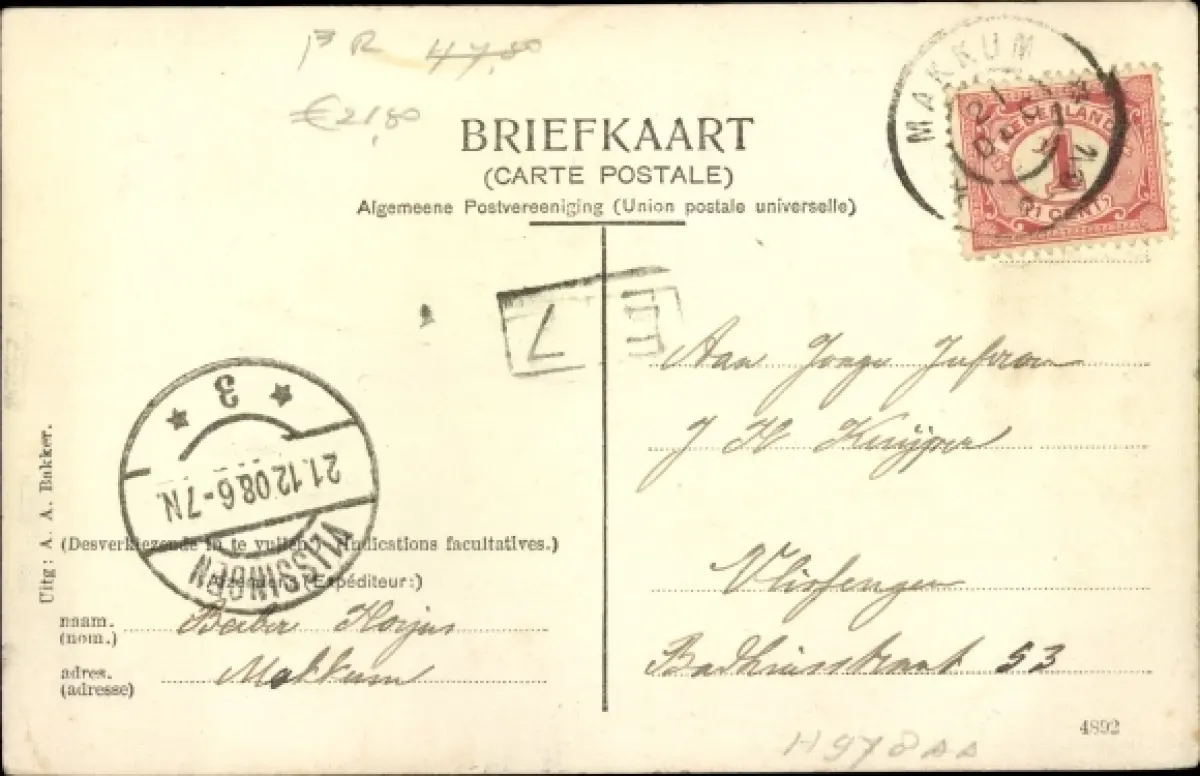 47,80
€ 21,80
BRIEFKAART
(CARTE POSTALE)
Algemeene Postvereeniging (Union postale universelle)
MAKKUM
NEDERLAND
1
CENT
7
Aan Jonge Jufvrouw
J H Kuijper
Vlissengen
Badhuisstraat 53
3
21.12.08 6-7N
VLISSINGEN
Uitg: A. A. Bakker.
(Desverkiezende in te vullen.) (Indications facultatives.)
Afzender: (Expéditeur:)
naam.
(nom.)
Makkum
adres.
(adresse)
4892
H978aa